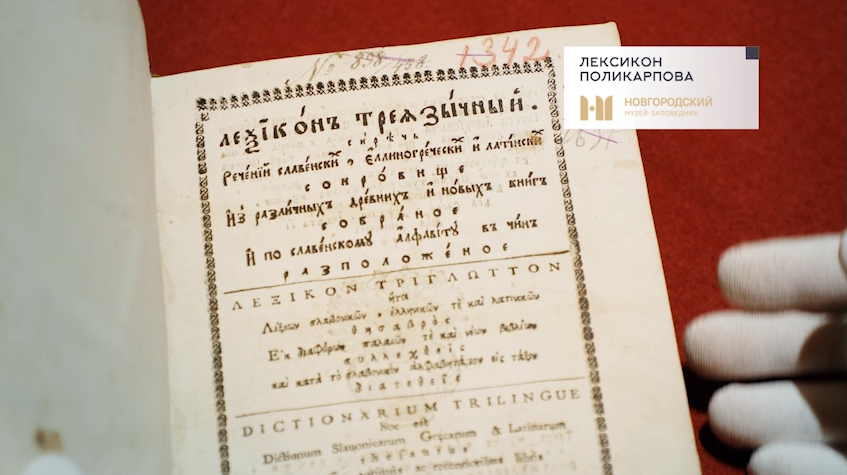 № 898/458.
1342
ЛЕКСИКОН
ПОЛИКАРПОВА
НОВГОРОДСКИЙ
МУЗЕЙ-ЗАПОВЕДНИК
леѯїко́нъ треѧзы́чный.
си́рѣчь
Рече́нїй славе́нскихъ, є҆ллиногре́ческихъ и҆ лати́нскихъ
сокро́вище
И҆з̾ разли́чныхъ дре́внихъ и҆ но́выхъ кни́гъ
собра́ное
И҆ по славе́нскому а҆лфави́ту въ чи́нъ
расположе́ное
ΛΕΞΙΚΟΝ ΤΡΙΓΛΩΤΤΟΝ
ἤτοι
Λέξεων σλαβονικῶν, ἑλληνικῶν τὲ καὶ λατινικῶν
θησαυρὸς
Ἐκ διαφόρων παλαιῶν τὲ καὶ νέων βιβλίων
συλλεχθεὶς
καὶ κατὰ τὸ σλαβονικὸν ἀλφαβητάριον εἰς τάξιν
διατεθεὶς
DICTIONARIUM TRILINGUE
hoc est
Dictionum Slavonicarum Græcarum & Latinarum
thesaurus